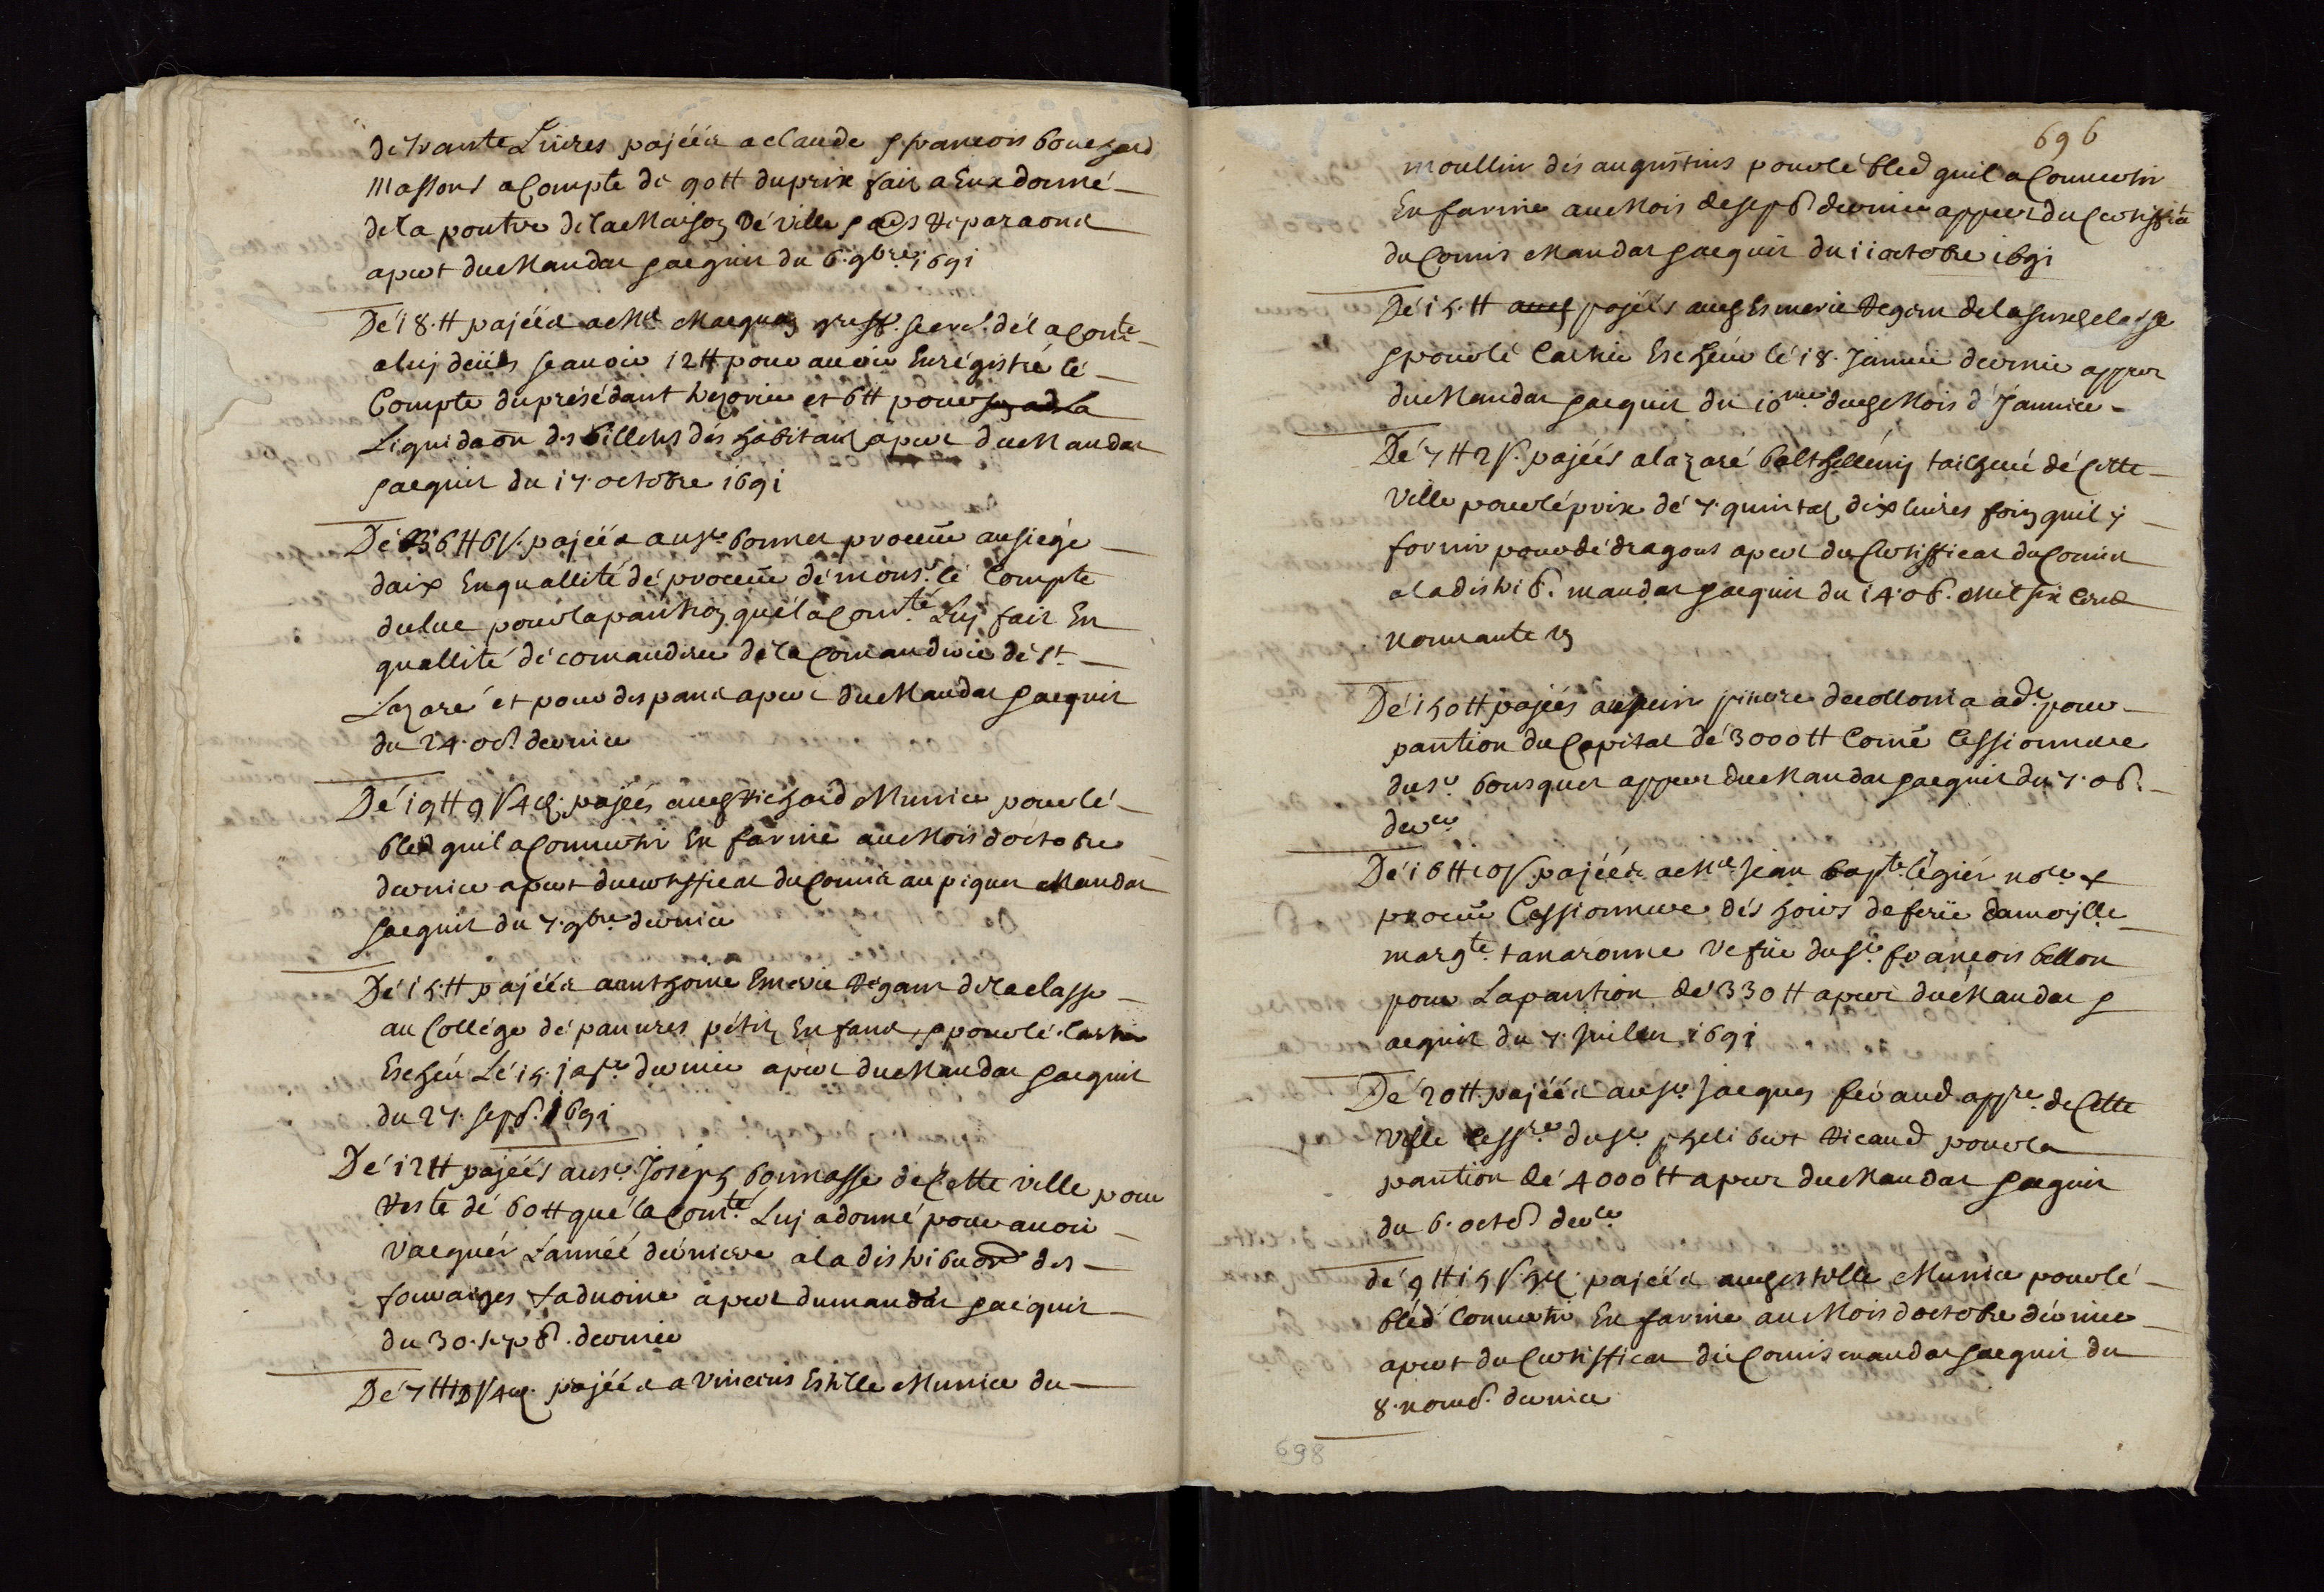 de trante Livres pajééz a claude & francois bouchard
massons a Compte de 90 tt du prix fait a Eux donné
de la poutre de la Maison dé ville & reparaons
apert du Mandat & acquit du 6. 9bre 1691
Dé 18. tt pajééz a Me greff. secre. dé la Comté
a luj deües scavoir 12 tt pour avoir Enrégistré lé
Compte du présédant trezorier et 6 tt pour
Liquidaôn des billets dés habitans apert du Mandat
& acquit du 17. octobre 1691
Dé 36 tt 6 s. pajééz au sr. bonnet procur̃ au siégé
daix En quallité dé procur̃ dé monsr. lé Compte
du luc pour la pantion qué la Comté. Luj fait En
quallité dé comandeur dé la Comanderie dé St.
Lazaré et pour des pans apert du Mandat & acquit
du 24. oct. dernier
Dé 19 tt 9 s 4 d. pajéés a Richard Munier pour lé
bled quil a Converti En farine au Mois doctobre
dernier apert du certifficat du Comis au piquet Mandat
& acquit du 7. 9bre dernier
Dé 15. tt pajééz a anthoine Emerie Regant de la classe
au Collége dé pauvres pétitz Enfans, & pour lé cartier
Escheu Lé 15. dernier apert du Mandat & acquit
du 27. sepb. 1691
Dé 12 tt pajéés au sr. Joséph bonnasse de Cette ville pour
Reste dé 60 tt qué la Comté. Luj a donné pour avoir
vacquér L'année derniere a la distribuôn des
fourages & advoine apert du mandat & acquit
du 30. sepb. dernier
Dé 7 tt 18 s 4 d. pajééz a Vincens Estille Munier du
696
moullin dés augustins pour lé bled quil a Converti
En farine au Mois de sepb. dernier appert du Certifficat
du Comis Mandat & acquit du 11 octobre 1691
Dé 15. tt pajéés a Esmerie Regant de la susd. classe
& pour lé Cartier Escheu lé 18. Janvier dernier appert
du Mandat & acquit du 10me dud. Mois d Janvier
Dé 7 tt 2 s. pajéés a lazaré balthellemj tailheur dé Cette
ville pour lé prix dé 7. quintal dix livres foin quil ÿ
fornir pour dé dragons apert du Certifficat du Comis
a la distrib. mandat & acquit du 14. 8b. Mil six cens
nonante un
Dé 150 tt pajéés au sieur pierre decollonia adt. pour
pantion du Capital dé 3000 tt Comé Cessionnere
du sr. bousquet appert du Mandat & acquit du 7. 8b.
derer.
Dé 16 tt 10 s pajéés a Me Jean bapte. légiér nore. &
procur̃ Cessionnere dés hoirs de feüe damoyselle
margte. tanaronne vefüe du sr. francois bellon
pour La pantion dé 330 tt apert du Mandat &
acquit du 7. Juilet 1691
Dé 20 tt. pajééz au sr. Jacques féraud appre. de Cette
Ville Cessre. du sr. phelibert Ricaud pour la
pantion dé 4000 tt apert du Mandat & acquit
du 6. octob. derer.
dé 9 tt 15 s. 9 d. pajééz a estille Munier pour lé
bléd Converti En farine au Mois doctobre dérnier
apert du Certifficat du Comis mandat & acquit du
8. novb. dernier
698